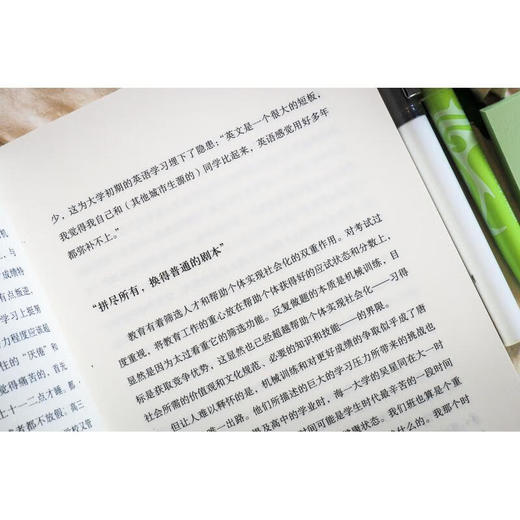 少，这为大学初期的英语学习埋下了隐患：“英文是一个很大的短板，
我觉得我自己和（其他城市生源的）同学比起来，英语感觉用好多年
都弥补不上。”
“拼尽所有，换得普通的剧本”
教育有着筛选人才和帮助个体实现社会化的双重作用。对考试过
度重视，将教育工作的重心放在帮助个体获得好的应试状态和分数上，
显然是因为太过看重它的筛选功能。反复做题的本质是机械训练，目
标是获取竞争优势，这显然也已经超越帮助个体实现社会化——习得
社会所需的价值观和文化规范、必要的知识和技能——的界限。
但让人难以释怀的是，机械训练和对更好成绩的争取似乎成了唐
唯一出路。他们所描述的巨大的学习压力所带来的挑战也
及高中的学业时，海一大学的吴星同在大一时
时间可能是学生时代最辛苦的一段时间
健康状态。我们班也算是个重
什么的。我那个时
，与
成绩特
有点叛逆，
学习上那里
力程度应该超
住的“厌倦”和
觉得痛苦的，首先
上十一二点才睡，那
者都不放假；高三
学校又管